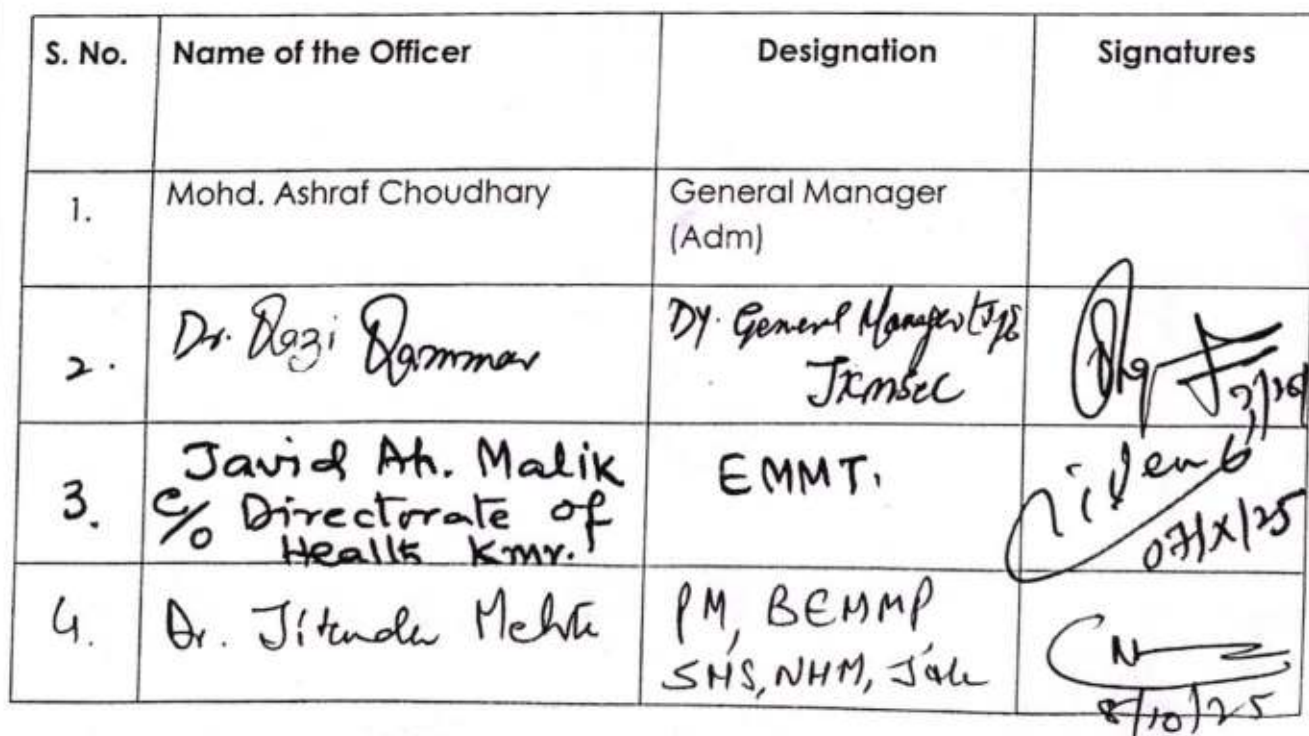 S. No. Name of the Officer Designation Signatures
1. Mohd. Ashraf Choudhary General Manager
(Adm)
2. Dr. Qazi Qammar Dy. General Manager
JKMSCL
3. Javid Ah. Malik EMMT.
C/o Directorate of
Health Kmr.
07/X/25
4. Dr. Jitender Mehta PM, BEMMP
SHS, NHM, J&K
8/10/25